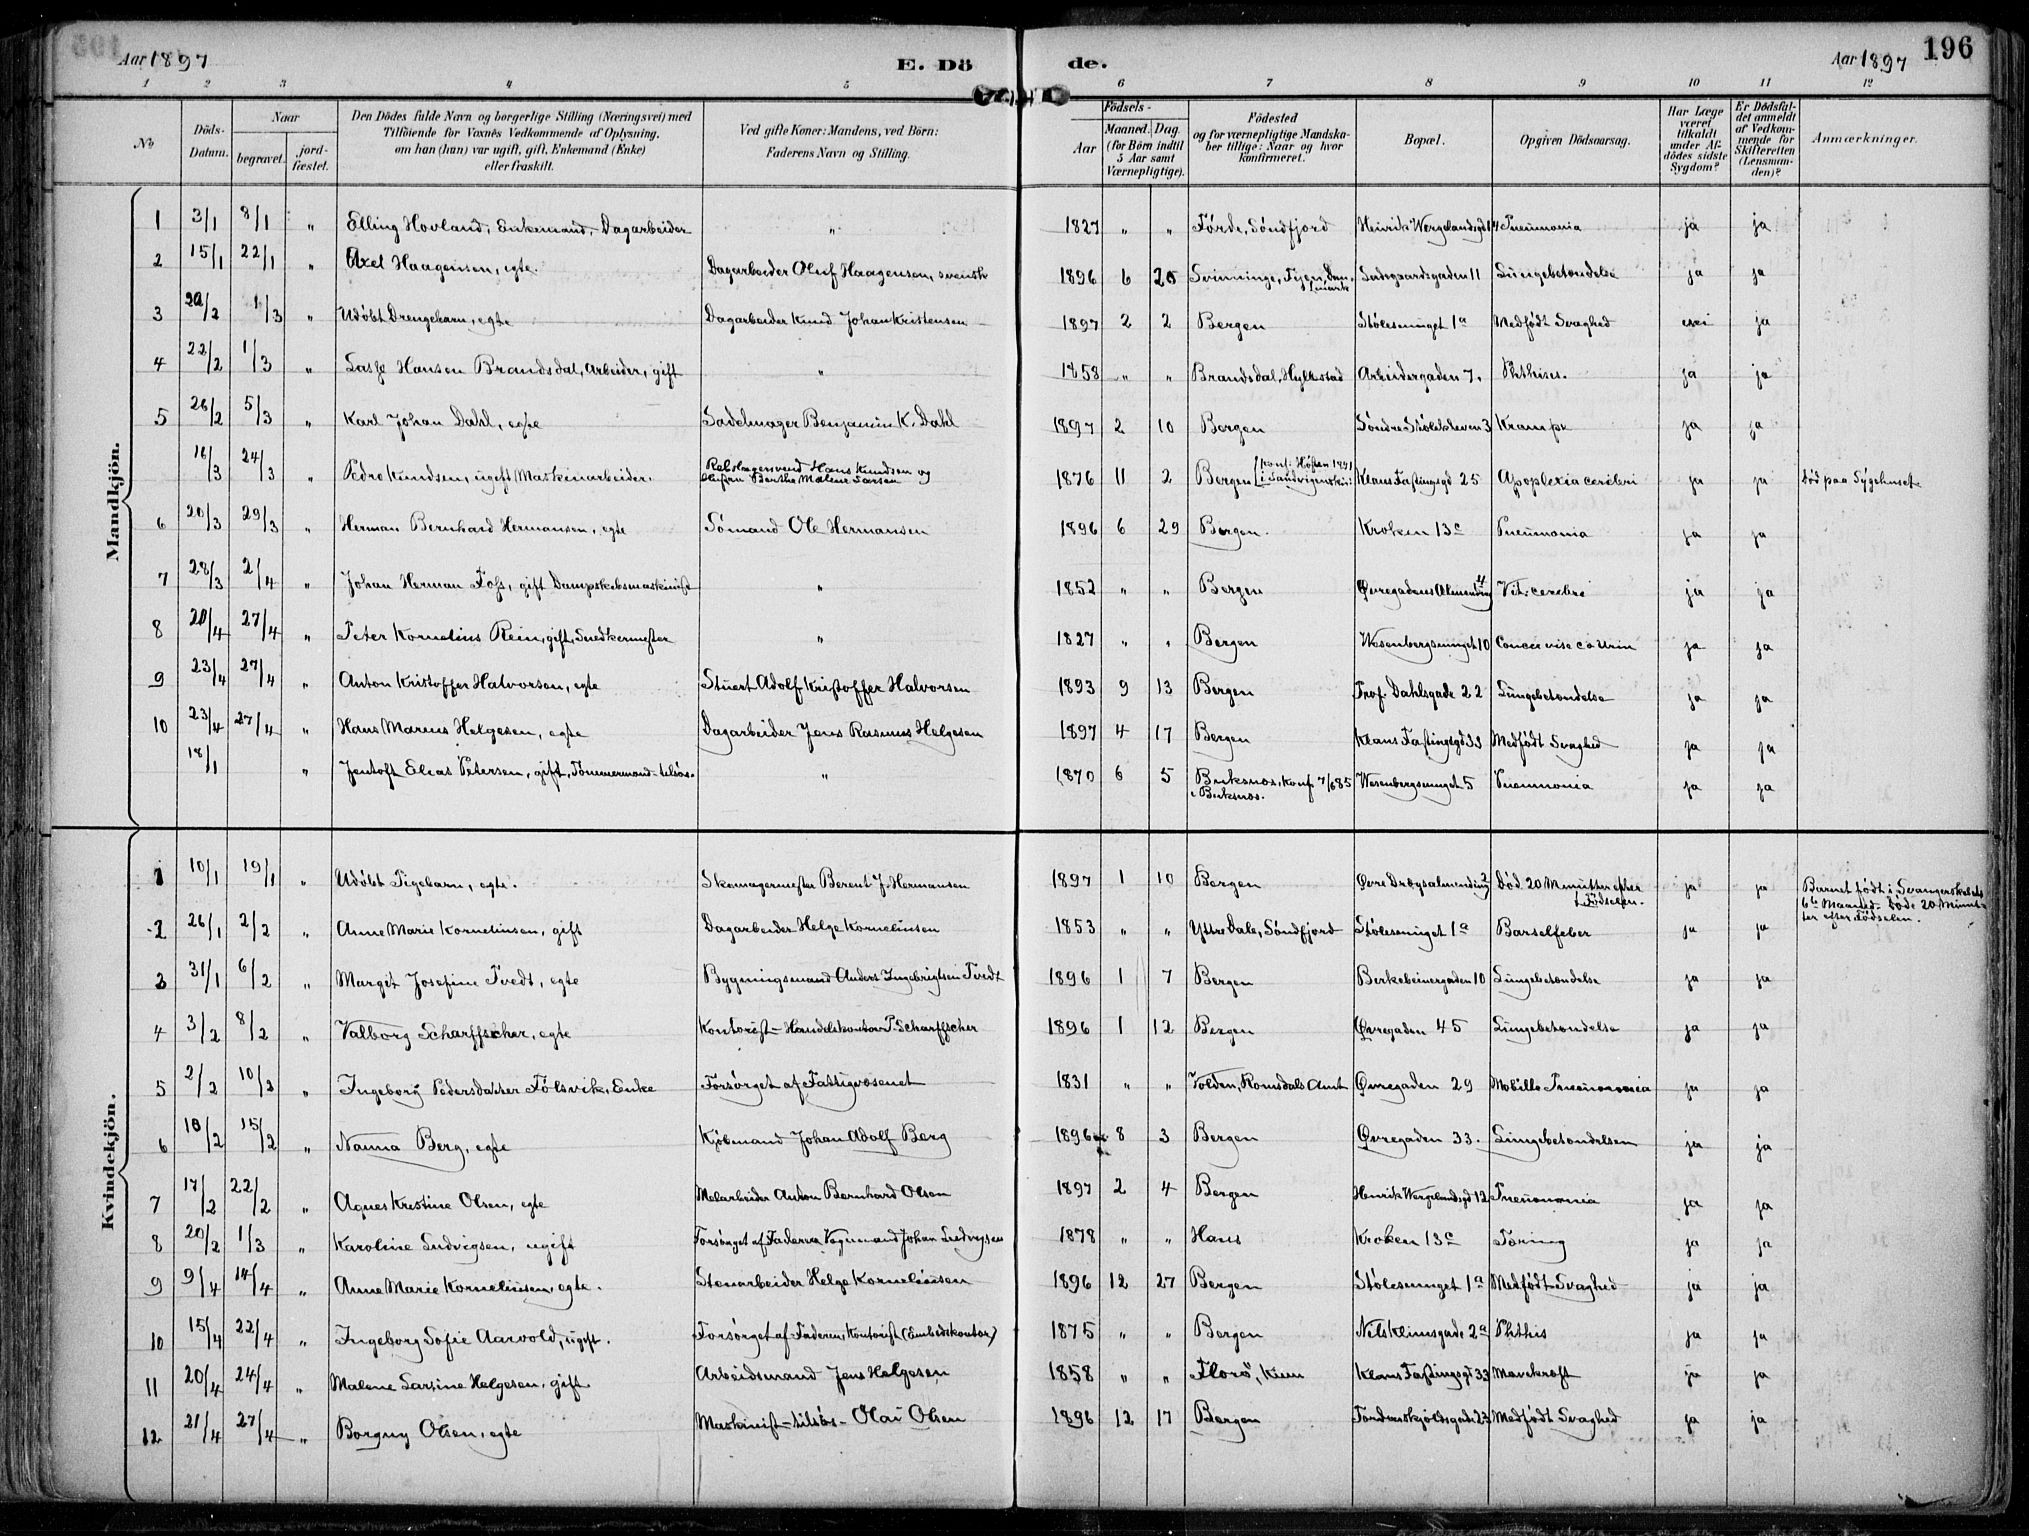 Aar 1897
E. Dö
de.
Aar 1897
196
1 2 3 4 5 6 7 8 9 10 11 12
No
Döds-Datum.
Naar
begravet.
jord-fæstet.
Den Dödes fulde Navn og borgerlige Stilling (Næringsvei) med
Tilföiende for Voxnes Vedkommende af Oplysning.
om han (hun) var ugift, gift, Enkemand (Enke)
eller fraskilt.
Ved gifte Koner: Mandens, ved Börn:
Faderens Navn og Stilling.
Födsels-
Aar
Maaned. Dag.
(for Börn indtil
5 Aar samt
Værnepligtige).
Födested
og for værnepligtige Mandska-
ber tillige: Naar og hvor
konfirmeret.
Bopæl.
Opgiven Dödsaarsag.
Har Læge
været
tilkaldt
under Af-
dödes sidste
Sygdom?
Er Dödsfal-
det anmeldt
af Vedkom-
mende for
Skifteretten
(Lensman-
den)?
Anmærkninger.
Mandkjön.
1 3/1 8/1 " Elling Hovland, Enkemand, Dagarbeider " 1827 " " Førde, Søndfjord Henrik Wergelandsgd 14 Pneumonia ja ja
2 15/1 22/1 " Axel Haagensen, egte. Dagarbeider Oluf Haagensen, svensk 1896 6 20 Svinninge, Fyen, Danmark Ladegaardsgaden 11 Lungebetendelse ja ja
3 20/2 1/3 " Udøbt Drengebarn, egte Dagarbeider Knud Johan Kristensen 1897 2 2 Bergen Stølesmuget 1a Medfødt Svaghed nei ja
4 22/2 1/3 " Lasse Hansen Brandsdal, Arbeider, gift " 1858 " " Brandsdal, Hyllestad Arbeidergaden 7. Phthises. ja ja
5 26/2 5/3 " Karl Johan Dahl, egte Sadelmager Benjamin K. Dahl 1897 2 10 Bergen Søndre Stølekleven 3 Krampe ja ja
16/3 24/3 " Pedro Knudsen, ugift Maskinarbeider. Rebslagersvend Hans Knudsen og
Hustru Berthe Malene Larsen 1876 11 2 Bergen (konf. Høsten 1891
i Sandvigenskir:) Klaus Fastingsgd 25 Apoplexia cerebri ja ja Død paa Sygehuset
6 20/3 29/3 " Herman Bernhard Hermansen, egte Sømand Ole Hermansen 1896 6 29 Bergen. Kroken 13c Pneumonia ja ja
7 28/3 2/4 " Johan Herman Foss, gift Dampskibsmaskinist " 1852 " " Bergen Øvregadens Almending 4 Vit. cerebri ja ja
8 20/4 27/4 " Peter Kornelius Rein, gift, Snedkermester " 1827 " " Bergen Wesenbergsmuget 10 Cancer ja ja
9 23/4 27/4 " Anton Kristoffer Halvorsen, egte Stuert Adolf Kristoffer Halvorsen 1893 9 13 Bergen Prof. Dahlsgade 22 Lungebetendelse ja ja
10 23/4 27/4 " Hans Marius Helgesen, egte Dagarbeider Jens Rasmus Helgesen 1897 4 17 Bergen Klaus Fastingsgd 33 Medfødt Svaghed ja ja
18/1 " Jentoft Elias Petersen, gift, Tømmermand tilsøs. " 1870 6 5 Buksnæs, konf. 7/6 85
i Buksnæs. Wesenbergsmuget 5 Pneumonia ja ja
Kvindekjön.
1 10/1 19/1 " Udøbt Pigebarn, egte. Skomagermester Berent J. Hermansen 1897 1 10 Bergen Øvre Dræggsalmending 2 Død 20 Minutter efter
Fødselen. ja ja Barnet født i Svangerskabets
6te Maaned. Døde 20 Minut-
ter efter Fødselen.
2 26/1 2/2 " Anne Marie Kornelinsen, gift Dagarbeider Helge Kornelinsen 1853 " " Yttre Dale, Søndfjord Stølesmuget 1a Barselfeber ja ja
3 31/1 6/2 " Margit Josefine Tvedt, egte Bygningsmand Anders Ingebrigtsen Tvedt 1896 1 7 Bergen Berkebeinergaden 10 Lungebetendelse ja ja
4 3/2 8/2 " Valborg Scharffscher, egte Kontorist-Handelskontor P. Scharffscher 1896 1 12 Bergen Øvregaden 45 Lungebetendelse ja ja
5 2/2 10/2 " Ingeborg Pedersdatter Følsvik, Enke Forsørget af Fattigvæsenet 1831 " " Volden, Romsdals Amt Øvregaden 29 Pneumonia ja ja
6 10/2 15/2 " Nanna Berg, egte Kjøbmand Johan Adolf Berg 1896 8 3 Bergen Øvregaden 33. Lungebetendelsen ja ja
7 17/2 22/2 " Agnes Kristine Olsen, egte Melarbeider Anton Bernhard Olsen 1897 2 4 Bergen Henrik Wergelandsgd 12 Pneumonia ja ja
8 20/2 1/3 " Karoline Ludvigsen, ugift Forsørget af Faderen Vognmand Johan Ludvigsen 1878 " " Haus Kroken 13c Tæring ja ja
9 9/4 14/4 " Anne Marie Kornelinsen, egte. Stenarbeider Helge Kornelinsen 1896 12 27 Bergen Stølesmuget 1a Medfødt Svaghed ja ja
10 15/4 22/4 " Ingeborg Sofie Aarvold, ugift. Forsørget af Faderen, Kontorist (Embedskontor) 1875 " " Bergen Nels Klimsgade 2a Phthis ja ja
11 20/4 24/4 " Malene Larsine Helgesen, gift Arbeidsmand Jens Helgesen 1858 " " Florø, Kinn Klaus Fastingsgd 33 Mavekræft ja ja
12 21/4 27/4 " Borguy Olsen, egte Maskinist-tilsøs- Olai Olsen 1896 12 17 Bergen Tordenskjoldsgade 23 Medfødt Svaghed ja ja